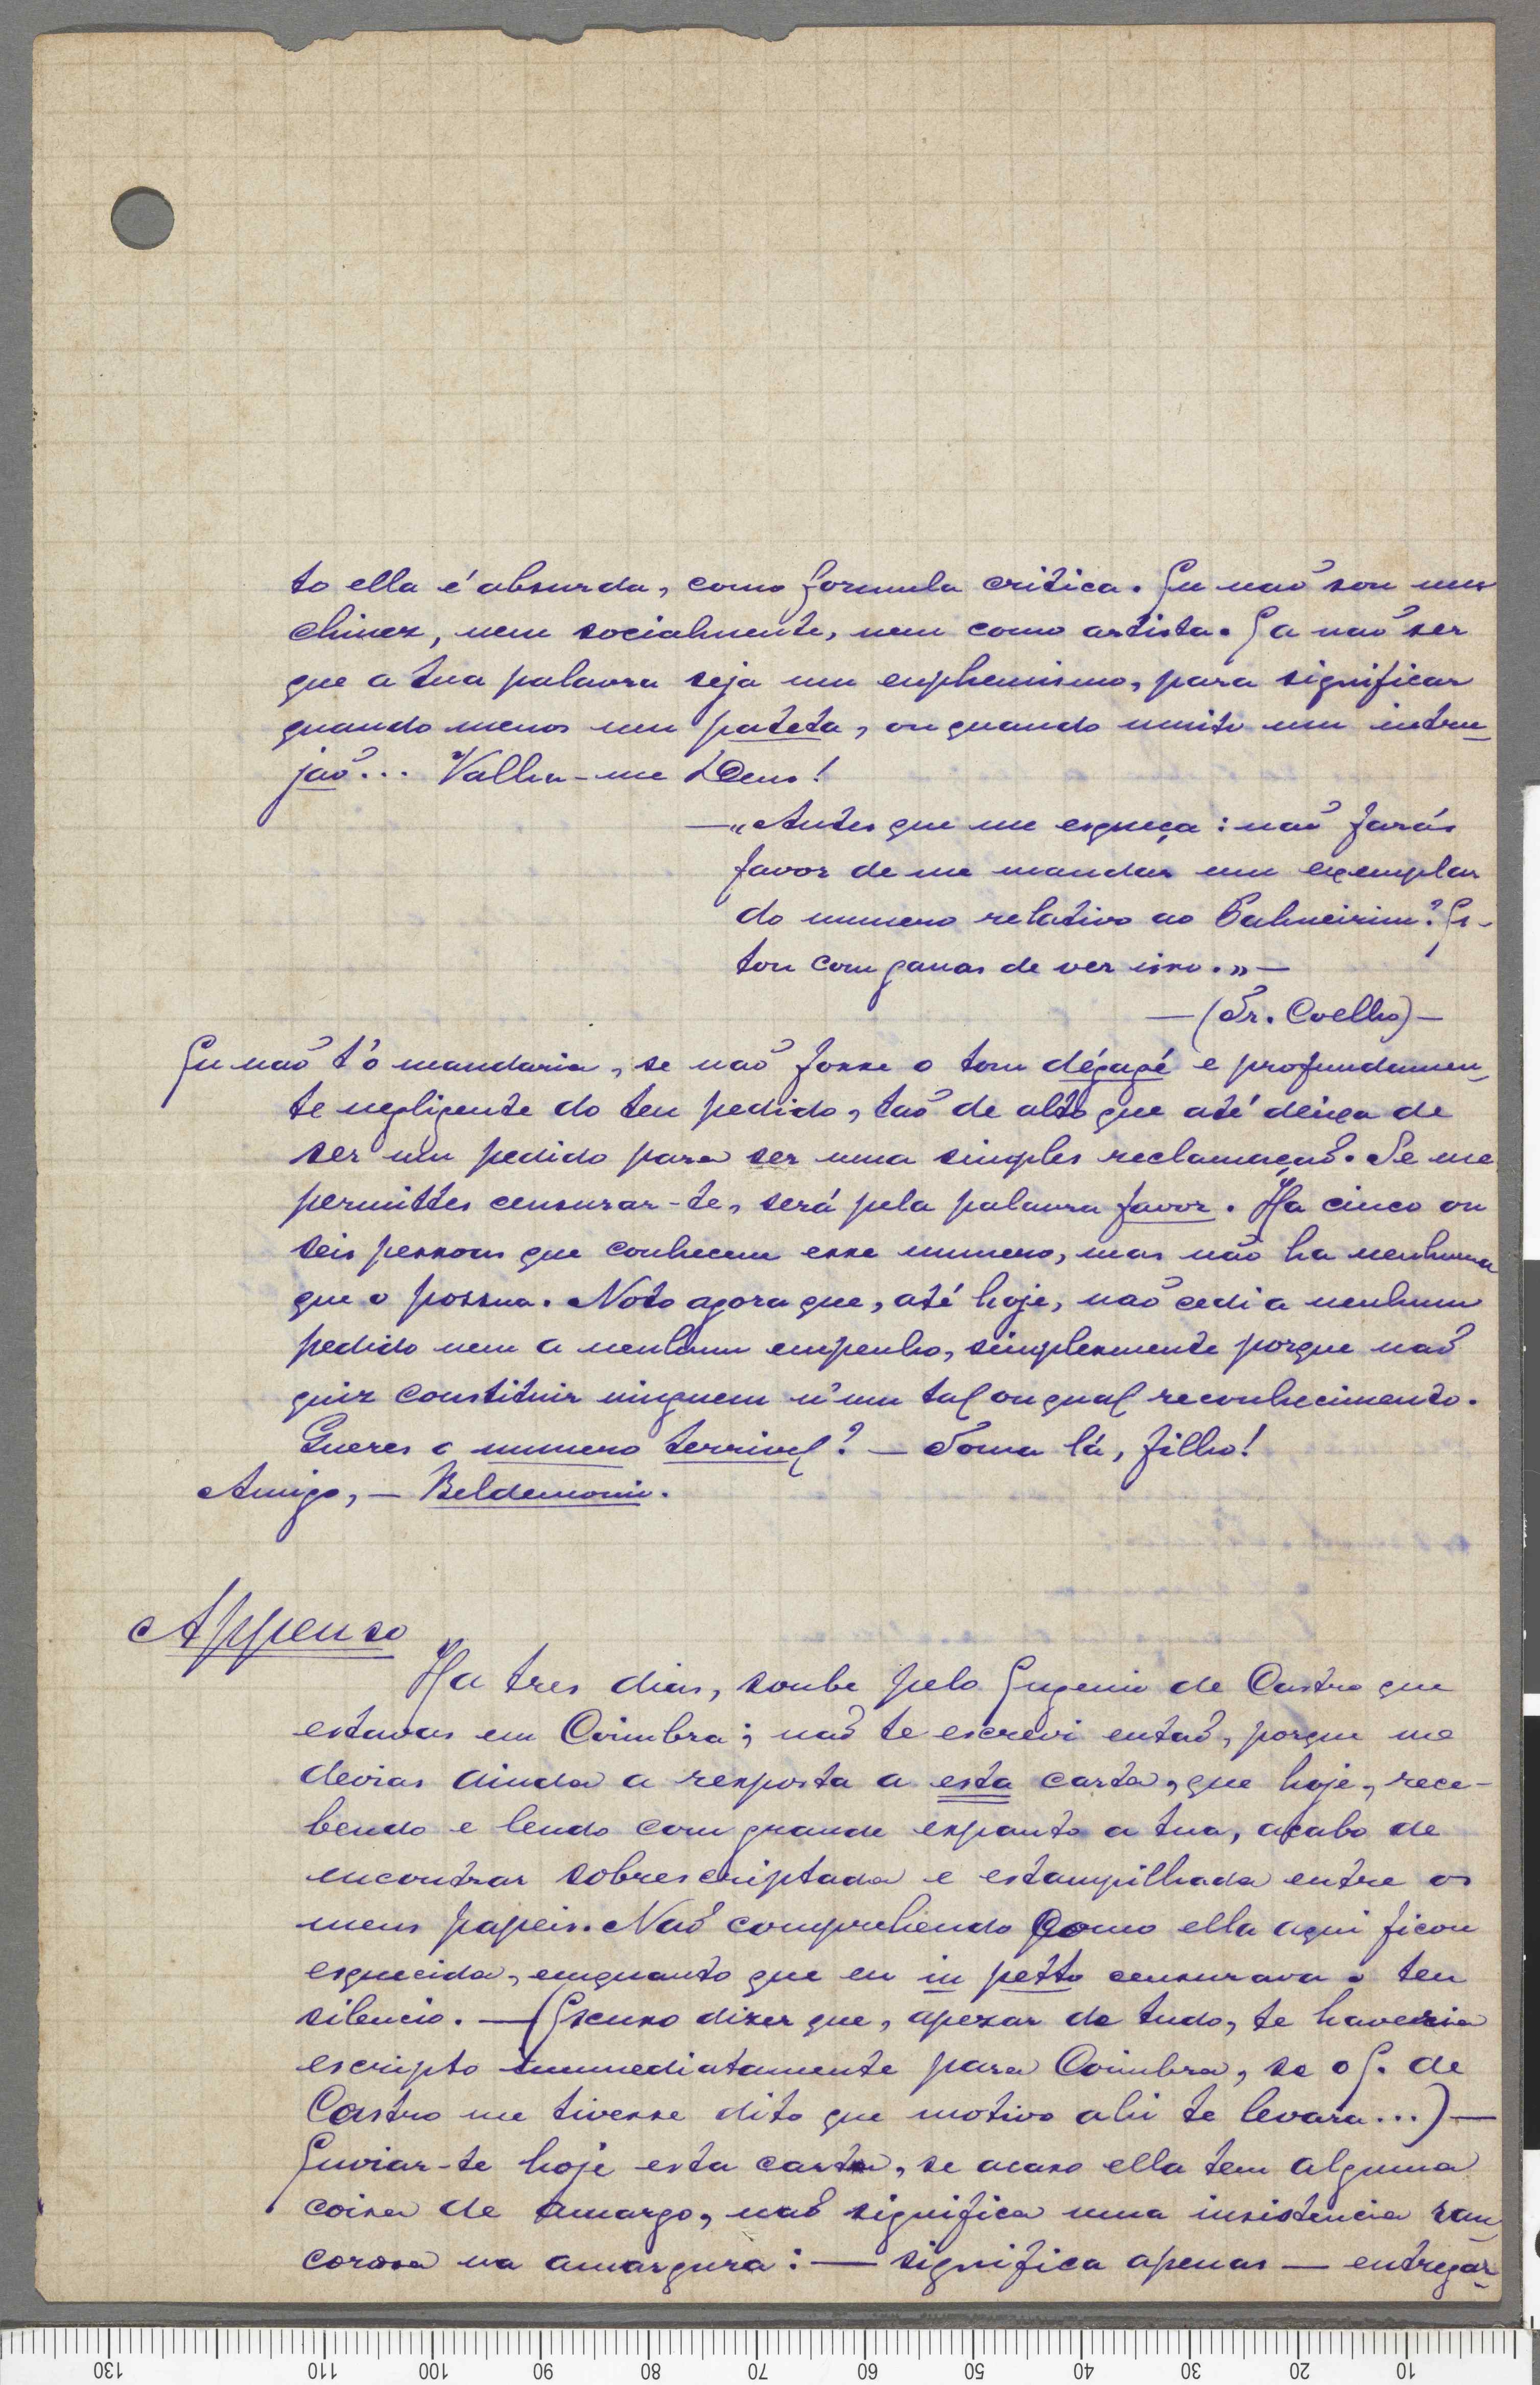 to ella é absurda, como formula critica. Eu naõ sou um
chinez, nem socialmente, nem como artista. E a naõ ser
que a tua palavra seja um euphemismo, para significar
quando menos um pateta, ou quando muito um intru-
jaõ... Valha-me Deus!
—"Antes que me esqueça: naõ farás
favor de me mandar um exemplar
do numero relativo ao Palmeirim? Es-
tou com ganas de ver isso.»—
—(Tr. Coelho)—
Eu naõ t'o mandaria, se naõ fosse o tom dégagé e profundamen-
te negligente do teu pedido, taõ de alto que até deixa de
ser um pedido para ser uma simples reclamaçaõ. Se me
permittes censurar-te, será pela palavra favor. Ha cinco ou
seis pessoas que conhecem esse numero, mas não ha nenhuma
que o possua. Noto agora que, até hoje, naõ cedi a nenhum
pedido nem a nenhum empenho, simplesmente porque naõ
quiz constituir ninguem n'um tal ou qual reconhecimento.
Queres o numero terrivel? — Toma lá, filho!
Amigo, — Beldemonio.
Appenso
Ha tres dias, soube pelo Eugenio de Castro que
estavas em Coimbra; naõ te escrevi entaõ, porque me
devias ainda a resposta a esta carta, que hoje, rece-
bendo e lendo com grande espanto a tua, acabo de
encontrar sobrescriptada e estampilhada entre os
meus papeis. Naõ comprehendo como ella aqui ficou
esquecida, emquanto que eu in petto censurava o teu
silencio. — (Escuso dizer que, apezar de tudo, te haveria
escripto immediatamente para Coimbra, se o E. de
Castro me tivesse dito que motivo ahi te levara...) —
Enviar-te hoje esta carta, se acaso ella tem alguma
coisa de amargo, naõ significa uma insistencia ran-
corosa na amargura: — significa apenas — entregar-
130
110
100
90
80
70
60
50
40
30
20
10